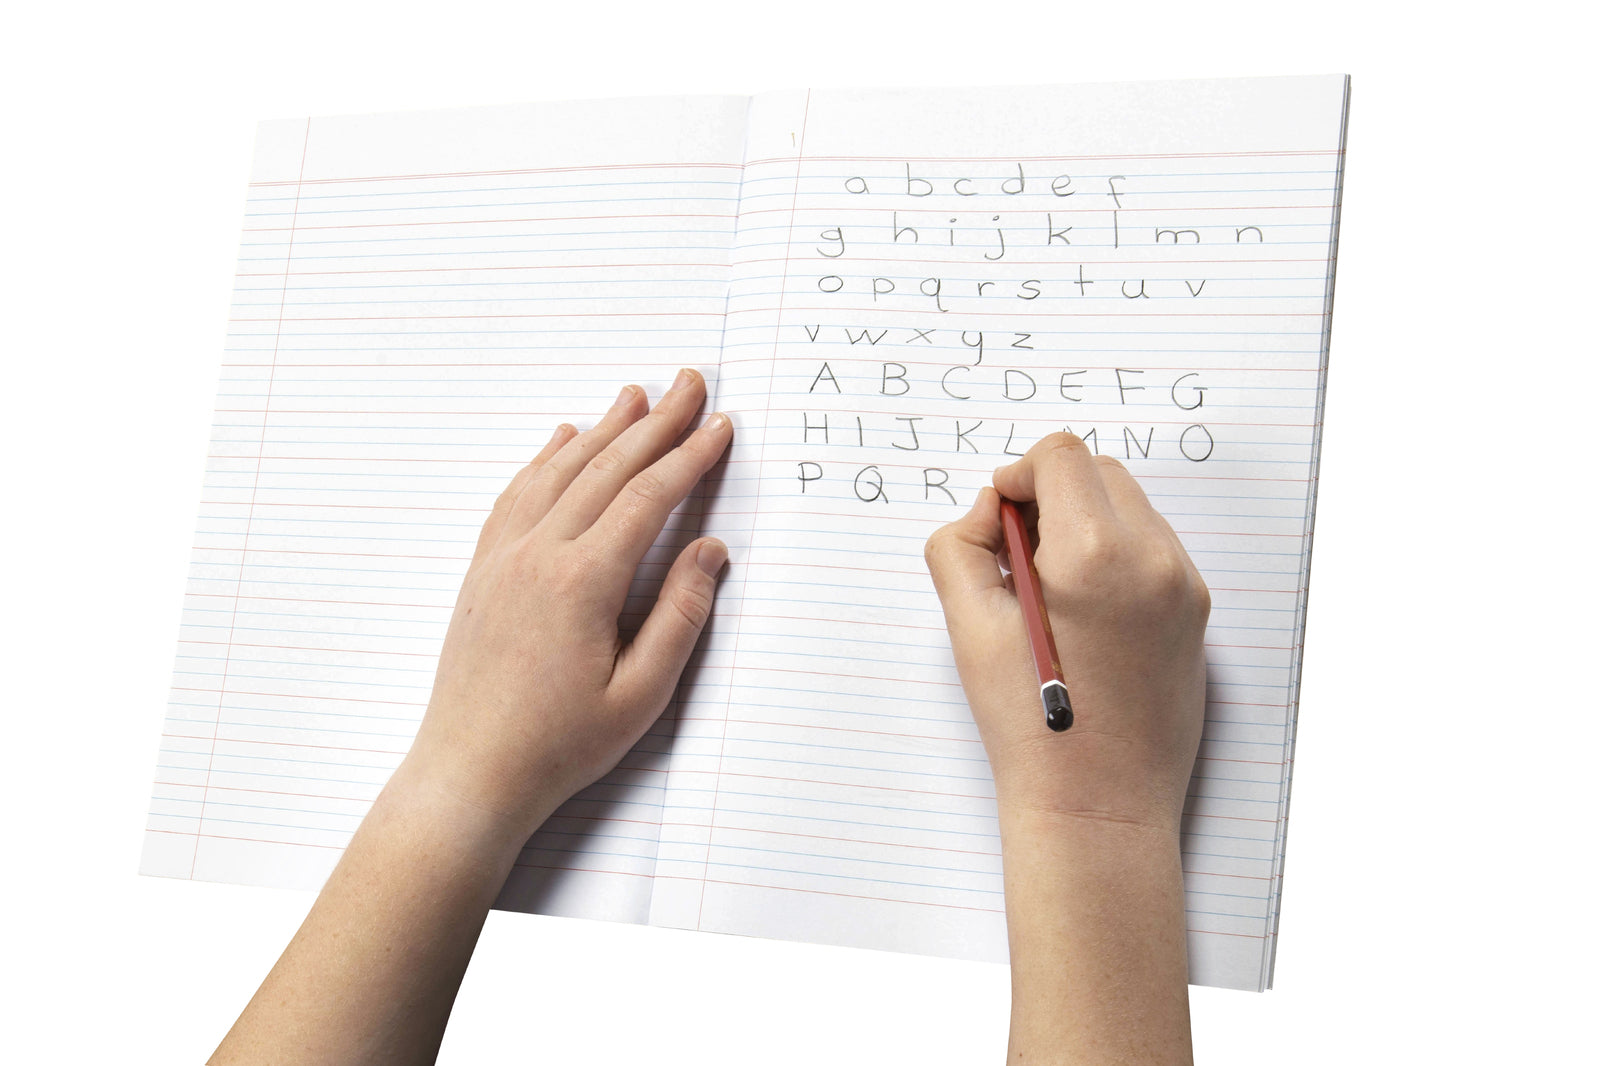 a b c d e f
g h i j k l m n
o p q r s t u v
v w x y z
A B C D E F G
H I J K L M N O
P Q R